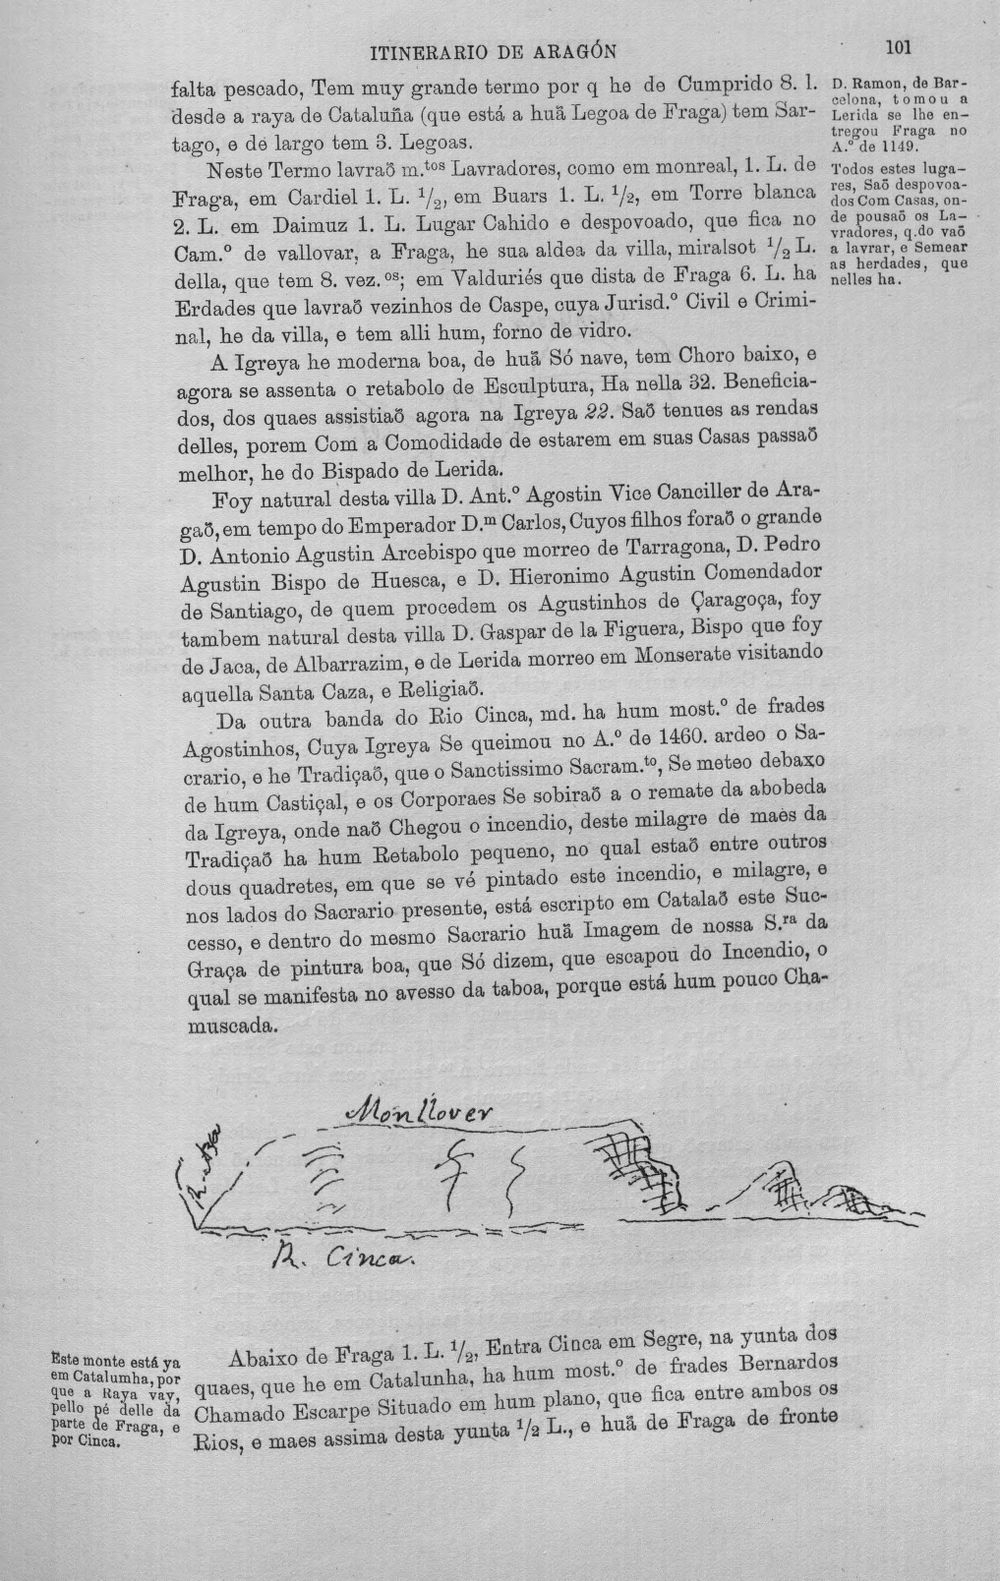 ITINERARIO DE ARAGÓN
101
falta pescado, Tem muy grande termo por q he de Cumprido 8. l.
desde a raya de Cataluña (que está a huã Legoa de Fraga) tem Sar-
tago, e de largo tem 3. Legoas.
Neste Termo lavraõ m.tos Lavradores, como em monreal, 1. L. de
Fraga, em Cardiel 1. L. 1/2, em Buars 1. L. 1/2, em Torre blanca
2. L. em Daimuz 1. L. Lugar Cahido e despovoado, que fica no
Cam.º de vallovar, a Fraga, he sua aldea da villa, miralsot 1/2 L.
della, que tem 8. vez.os; em Valduriés que dista de Fraga 6. L. ha
Erdades que lavraõ vezinhos de Caspe, cuya Jurisd.º Civil e Crimi-
nal, he da villa, e tem alli hum, forno de vidro.
A Igreya he moderna boa, de huã Só nave, tem Choro baixo, e
agora se assenta o retabolo de Esculptura, Ha nella 32. Beneficia-
dos, dos quaes assistiaõ agora na Igreya 22. Saõ tenues as rendas
delles, porem Com a Comodidade de estarem em suas Casas passaõ
melhor, he do Bispado de Lerida.
Foy natural desta villa D. Ant.º Agostin Vice Canciller de Ara-
gaõ, em tempo do Emperador D.m Carlos, Cuyos filhos foraõ o grande
D. Antonio Agustin Arcebispo que morreo de Tarragona, D. Pedro
Agustin Bispo de Huesca, e D. Hieronimo Agustin Comendador
de Santiago, de quem procedem os Agustinhos de Çaragoça, foy
tambem natural desta villa D. Gaspar de la Figuera, Bispo que foy
de Jaca, de Albarrazim, e de Lerida morreo em Monserate visitando
aquella Santa Caza, e Religiaõ.
Da outra banda do Rio Cinca, md. ha hum most.º de frades
Agostinhos, Cuya Igreya Se queimou no A.º de 1460. ardeo o Sa-
crario, e he Tradiçaõ, que o Sanctissimo Sacram.to, Se meteo debaxo
de hum Castiçal, e os Corporaes Se sobiraõ a o remate da abobeda
da Igreya, onde naõ Chegou o incendio, deste milagre de maes da
Tradiçaõ ha hum Retabolo pequeno, no qual estaõ entre outros
dous quadretes, em que se vé pintado este incendio, e milagre, e
nos lados do Sacrario presente, está escripto em Catalaõ este Suc-
cesso, e dentro do mesmo Sacrario huã Imagem de nossa S.ra da
Graça de pintura boa, que Só dizem, que escapou do Incendio, o
qual se manifesta no avesso da taboa, porque está hum pouco Cha-
muscada.
D. Ramon, de Bar-
celona, tomou a
Lerida se lhe en-
tregou Fraga no
A.º de 1149.
Todos estes luga-
res, Saõ despovoa-
dos Com Casas, on-
de pousaõ os La-
vradores, q.do vaõ
a lavrar, e Semear
as herdades, que
nelles ha.
Monllover
R. Cinca.
Este monte está ya
em Catalumha, por
que a Raya vay,
pello pé delle da
parte de Fraga, e
por Cinca.
Abaixo de Fraga 1. L. 1/2, Entra Cinca em Segre, na yunta dos
quaes, que he em Catalunha, ha hum most.º de frades Bernardos
Chamado Escarpe Situado em hum plano, que fica entre ambos os
Rios, e maes assima desta yunta 1/2 L., e huã de Fraga de fronte